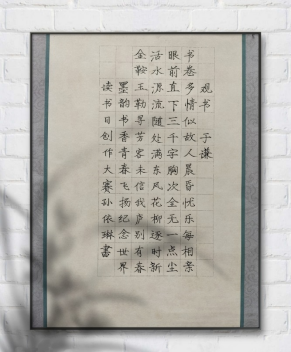 观书 于谦
书卷多情似故人晨昏忧乐每相亲
眼前直下三千字胸次全无一点尘
活水源流随处满东风花柳逐时新
金鞍玉勒寻芳客未信我庐别有春
墨韵书香青春飞扬纪念世界
读书日创作大赛孙依琳書